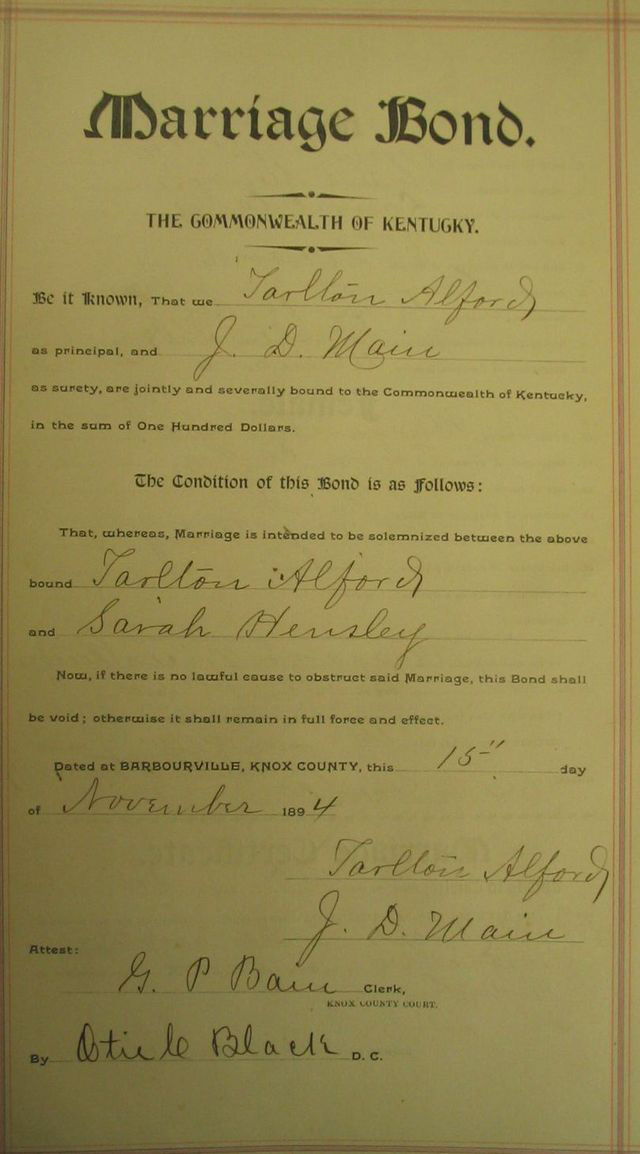 Marriage Bond.
THE COMMONWEALTH OF KENTUCKY.
Be it Known, That we Tarlton Alford
as principal, and J. D. Main
as surety, are jointly and severally bound to the Commonwealth of Kentucky,
in the sum of One Hundred Dollars.
The Condition of this Bond is as Follows:
That, whereas, Marriage is intended to be solemnized between the above
bound Tarlton Alford
and Sarah Hensley
Now, if there is no lawful cause to obstruct said Marriage, this Bond shall
be void; otherwise it shall remain in full force and effect.
Dated at BARBOURVILLE, KNOX COUNTY, this 15" day
of November 1894
Tarlton Alford
J. D. Main
Attest:
G. P Bain Clerk,
KNOX COUNTY COURT.
By Black D. C.